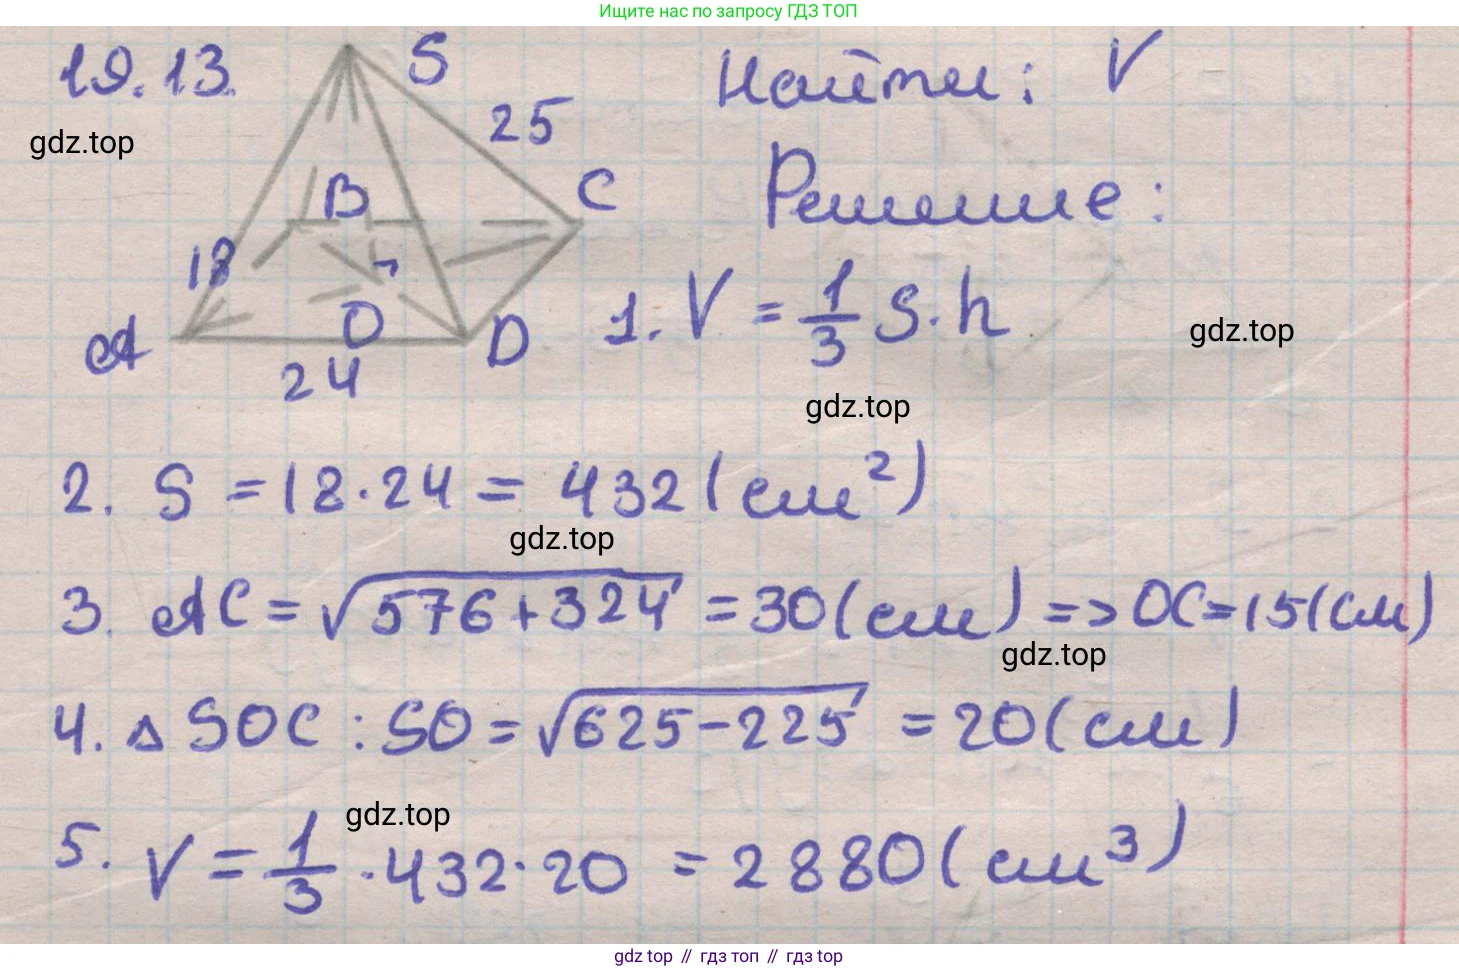 Ищите нас по запросу ГДЗ ТОП
19.13.
S
Найти: V
gdz.top
25
B
C
Решение:
18
O
A
D
24
1. V = 1/3 S · h
gdz.top
gdz.top
2. S = 18 · 24 = 432 (см²)
gdz.top
3. AC = √576 + 324 = 30 (см) => OC = 15 (см)
gdz.top
4. △ SOC : SO = √625 - 225 = 20 (см)
gdz.top
5. V = 1/3 · 432 · 20 = 2880 (см³)
gdz top // гдз топ // гдз top